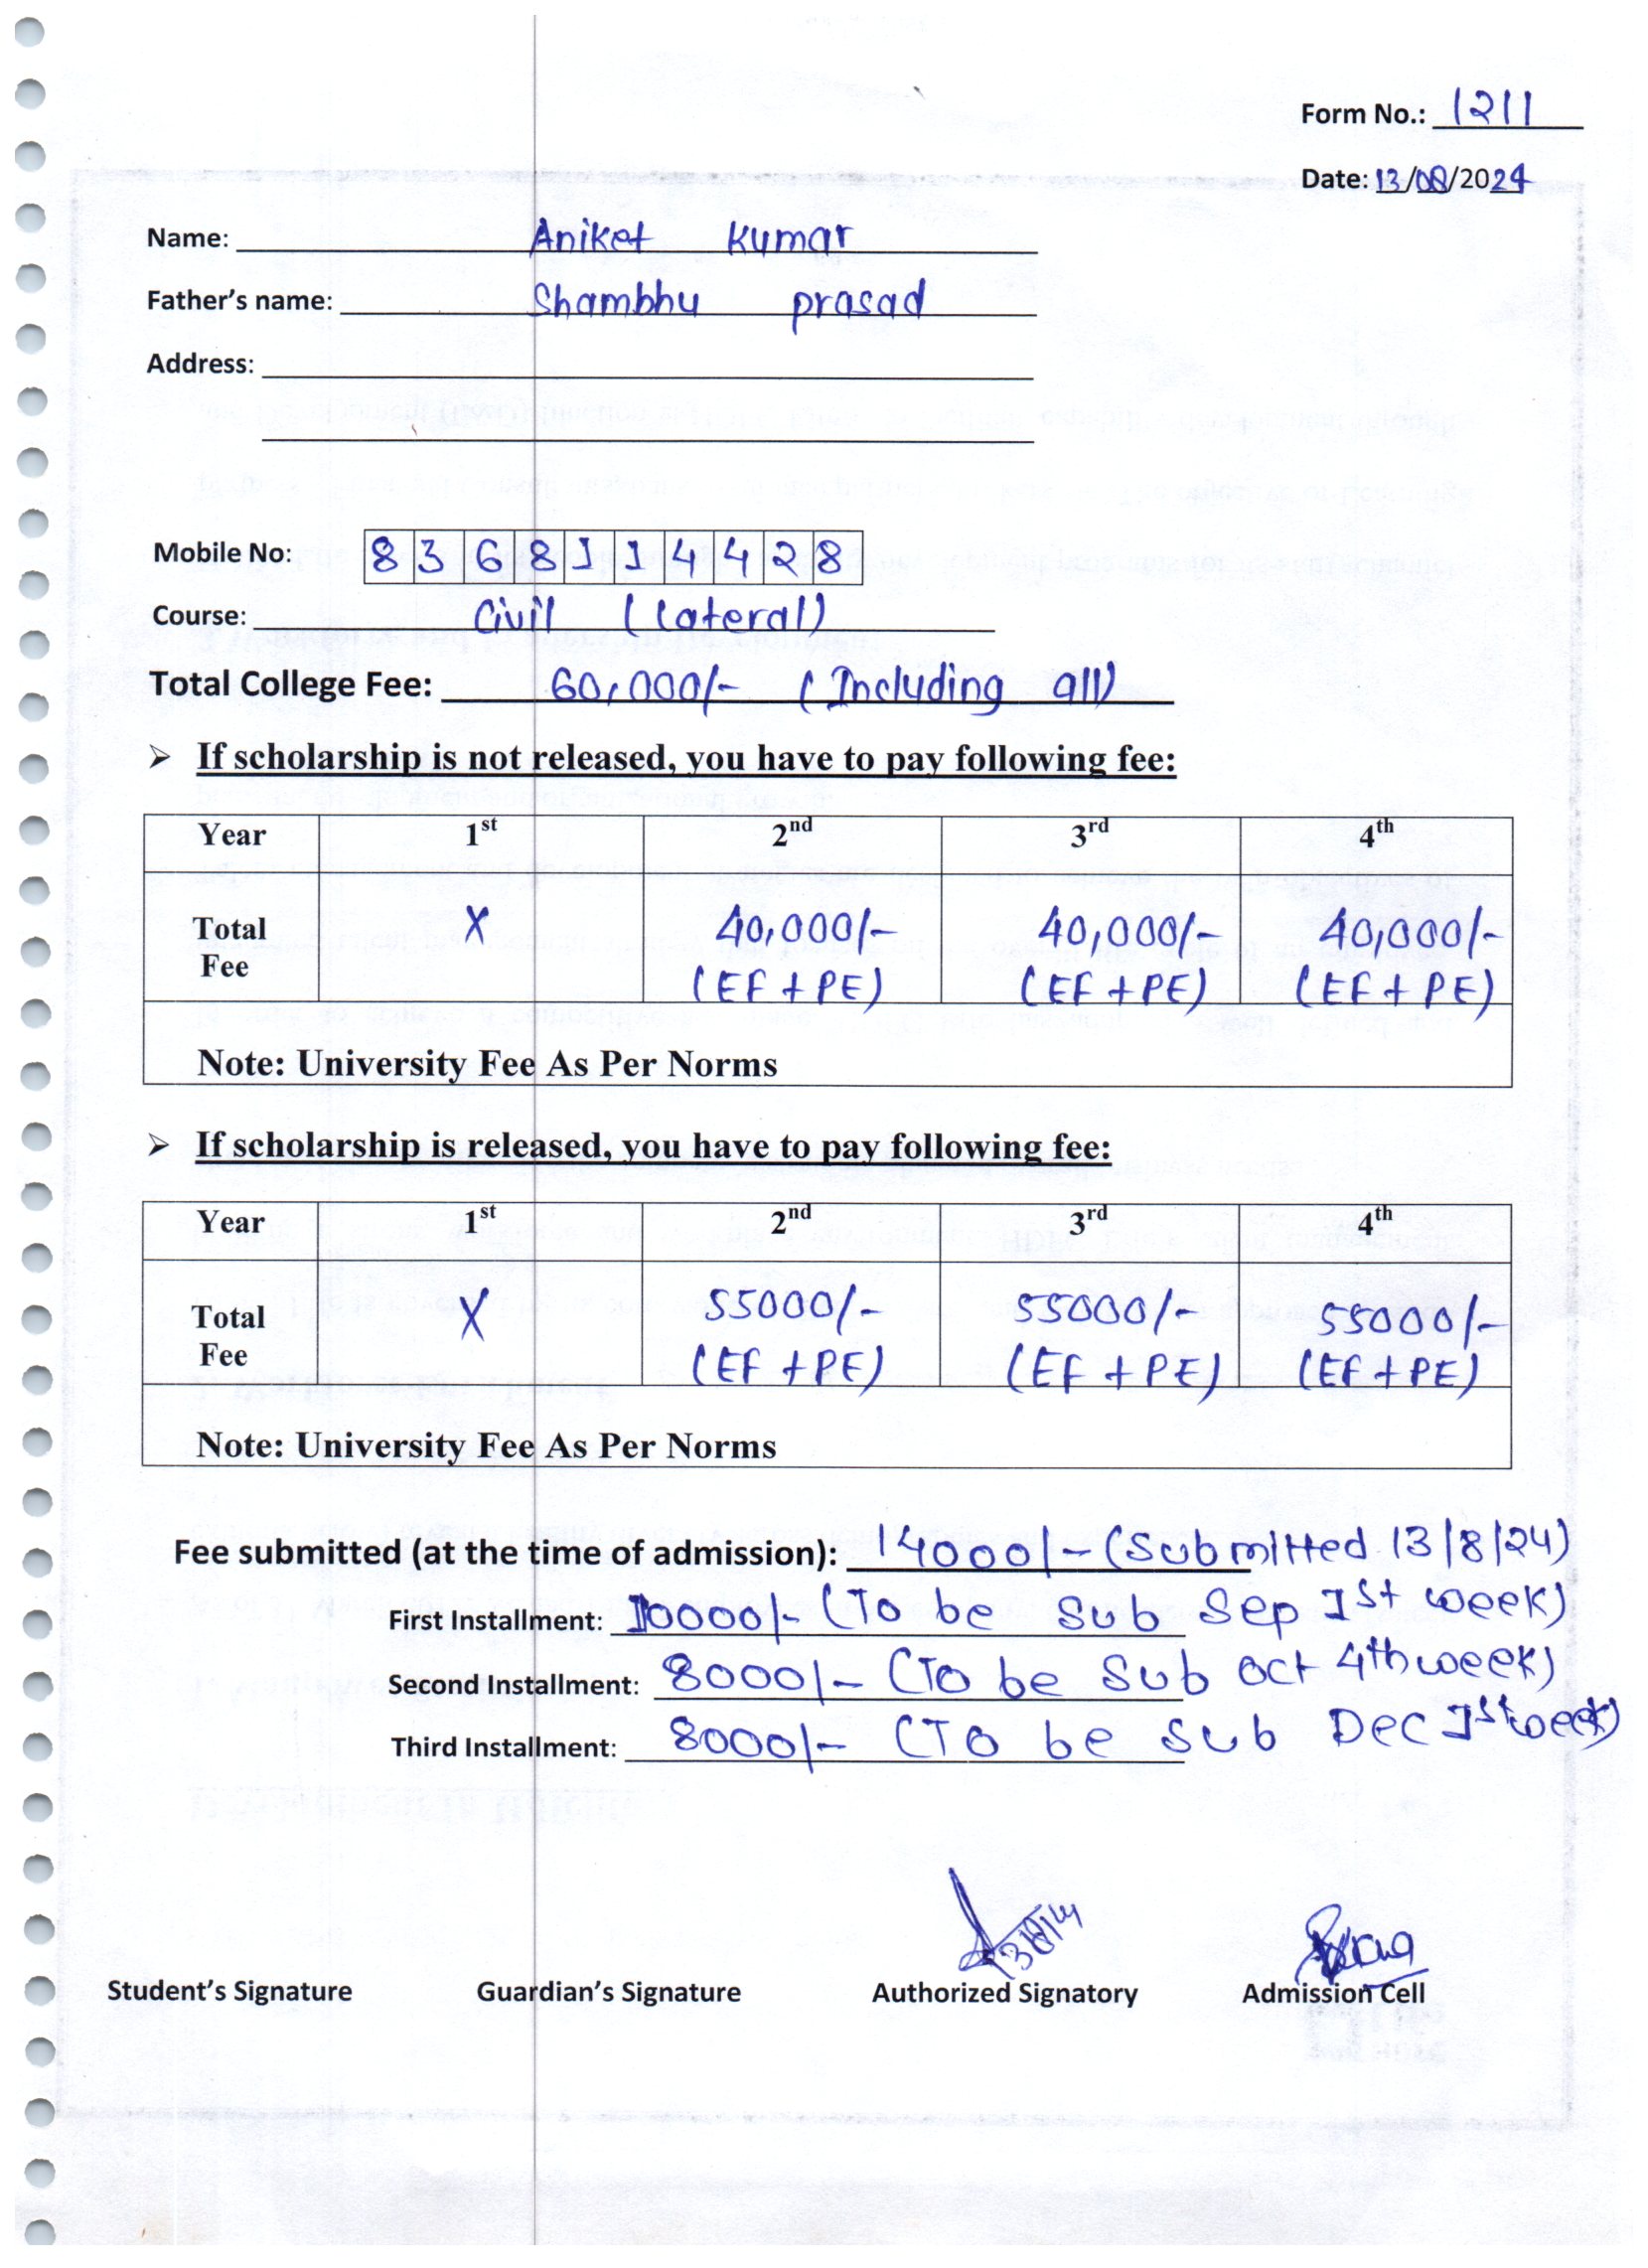 Form No.: 1211
Date: 13/08/2024
Name: Aniket Kumar
Father's name: Shambhu prasad
Address:
Mobile No: 8368114428
Course: Civil (Lateral)
Total College Fee: 60,000/- (Including all)
➢ If scholarship is not released, you have to pay following fee:
Year 1st 2nd 3rd 4th
Total Fee X 40,000/- 40,000/- 40,000/-
(EF + PE) (EF + PE) (EF + PE)
Note: University Fee As Per Norms
➢ If scholarship is released, you have to pay following fee:
Year 1st 2nd 3rd 4th
Total Fee X 55000/- 55000/- 55000/-
(EF + PE) (EF + PE) (EF + PE)
Note: University Fee As Per Norms
Fee submitted (at the time of admission): 14000/- (Submitted 13/8/24)
First Installment: 10000/- (To be Sub Sep 1st week)
Second Installment: 8000/- (To be Sub Oct 4th week)
Third Installment: 8000/- (To be Sub Dec 1st week)
Student's Signature Guardian's Signature Authorized Signatory Admission Cell